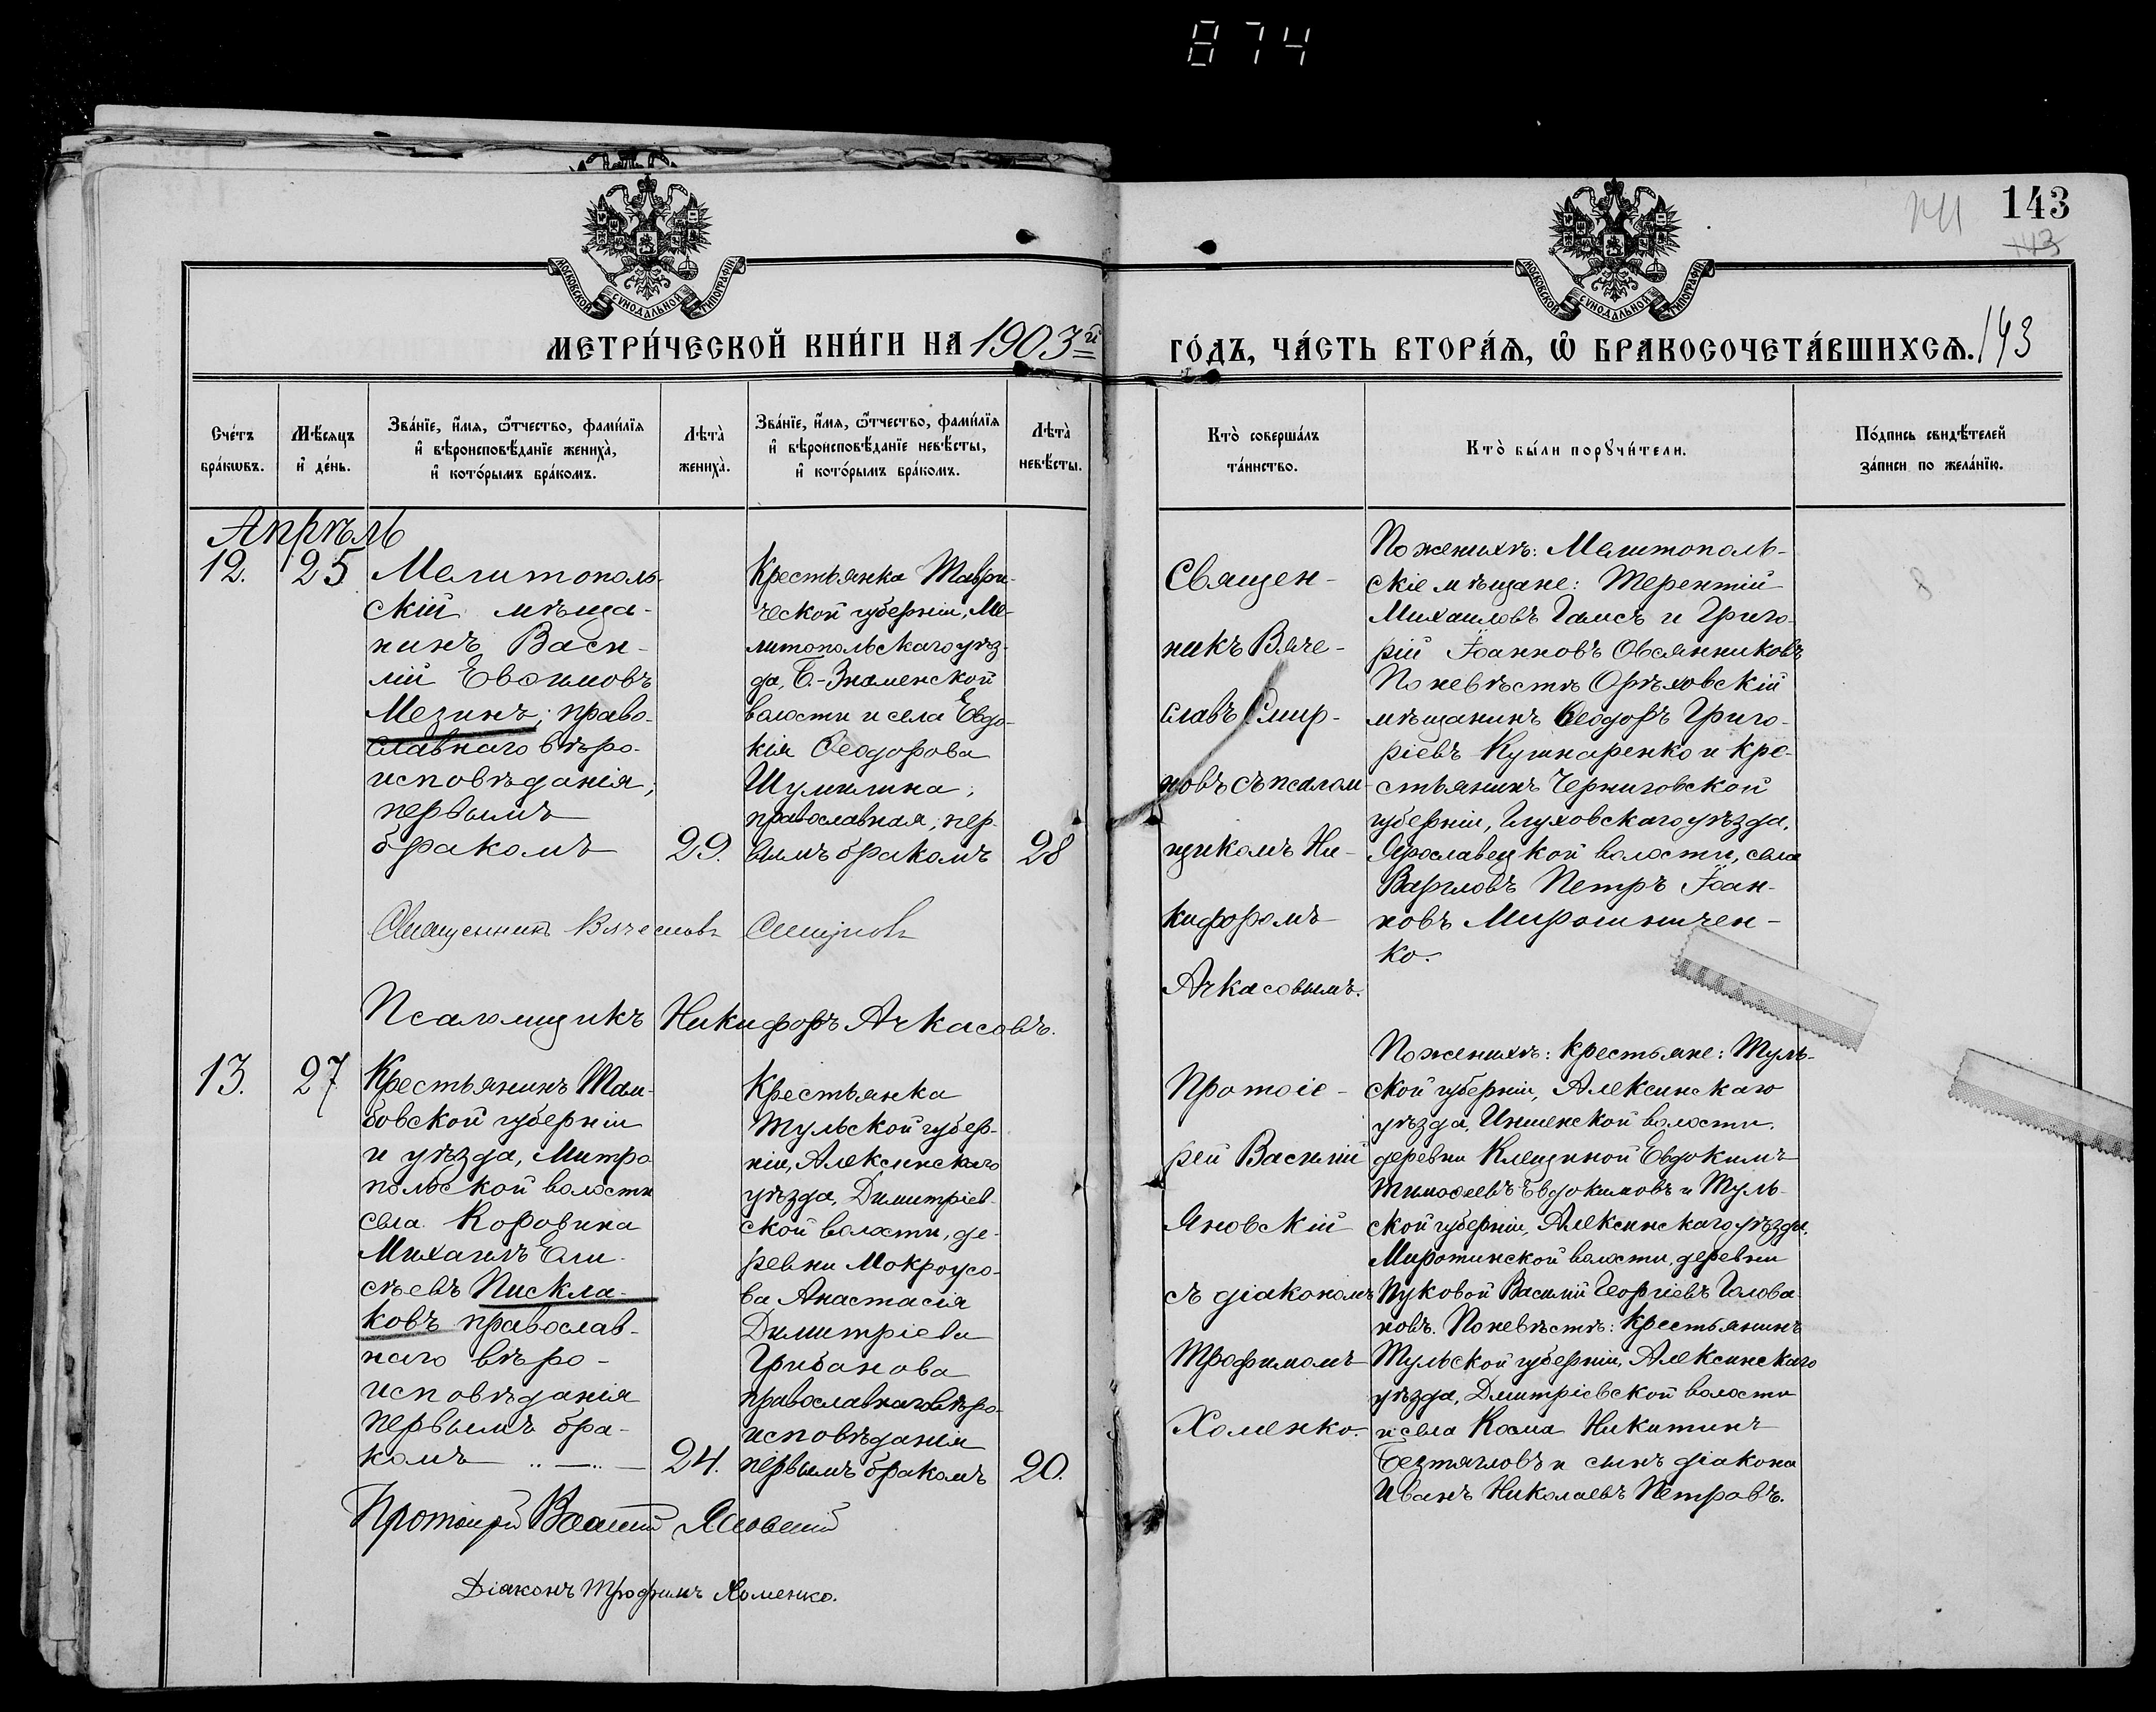 874
143
143
МОСКОВСКОЙ СѴНОДАЛЬНОЙ ТИПОГРАФІИ
МОСКОВСКОЙ СѴНОДАЛЬНОЙ ТИПОГРАФІИ
МЕТРИ́ЧЕСКОЙ КНИ́ГИ НА 1903й
ГО́ДЪ, ЧА́СТЬ ВТОРА́Я, Ѽ БРАКОСОЧЕТА́ВШИХСѦ. 143
Сче́тъ
бра́кѡвъ.
Мѣ́сѧцъ
и҆ де́нь.
Зва́нїе, и҆́мѧ, ѻ҆́тчество, фамилїѧ
и҆ вѣроисповѣ́данїе жениха̀,
и҆ кото́рымъ бра́комъ.
Лѣта̀
жениха̀.
Зва́нїе, и҆́мѧ, ѻ҆́тчество, фами́лїѧ
и҆ вѣроисповѣ́данїе невѣ́сты,
и҆ кото́рымъ бра́комъ.
Лѣта̀
невѣ́сты.
Кто̀ соверша́лъ
та́инство.
Кто̀ бы́ли порꙋчи́тели.
По́дпись свидѣ́телей
за́писи по жела́нїю.
Апрѣль
12.
25
Мелитополь-
скій мѣща-
нинъ Васи-
лій Евѳимовъ
Мезинъ; право-
славнаго вѣро-
исповѣданія;
первымъ
бракомъ
29.
Крестьянка Таври-
ческой губерніи, Ме-
литопольскаго уѣз-
да, Б.-Знаменской
волости и села Евдо-
кія Ѳеодорова
Шумилина;
православная, пер-
вымъ бракомъ
28
Священ-
никъ Вяче-
славъ Смир-
новъ съ псалом-
щикомъ Ни-
кифоромъ
Ачкасовымъ.
По женихѣ: Мелитополь-
скіе мѣщане: Терентій
Михаиловъ Гамсъ и Григо-
рій Іоанновъ Овсянниковъ
По невѣстѣ Орѣховскій
мѣщанинъ Ѳеодоръ Григо-
ріевъ Кушнаренко и кре-
стьянинъ Черниговской
губерніи, Глуховскаго уѣзда,
Ярославецкой волости, села
Варгловъ Петръ Іоан-
новъ Мирошничен-
ко.
8
Священникъ Вячеславъ Смирновъ
Псаломщикъ Никифоръ Ачкасовъ.
13.
27
Крестьянинъ Там-
бовской губерніи
и уѣзда, Митро-
польской волости
села Коровина
Михаилъ Ели-
сѣевъ Пискла-
ковъ православ-
наго вѣро-
исповѣданія
первымъ бра-
комъ
24.
Крестьянка
Тульской губер-
ніи, Алексинскаго
уѣзда, Димитріев-
ской волости, де-
ревни Мокроусо-
ва Анастасія
Димитріева
Грибанова
православнаго вѣро-
исповѣданія
первымъ бракомъ
20.
Протоіе-
рей Василій
Яновскій
съ діакономъ
Трофимомъ
Хоменко.
По женихѣ: крестьяне: Туль-
ской губерніи, Алексинскаго
уѣзда, Иншенской волости,
деревни Клещиной Евдокимъ
Тимоѳеевъ Евдокимовъ и Туль-
ской губерніи, Алексинскаго уѣзда,
Миротинской волости, деревни
Пуковой Василій Георгіевъ Голова-
новъ. По невѣстѣ: крестьянинъ
Тульской губерніи, Алексинскаго
уѣзда, Дмитріевской волости
и села Косма Никитинъ
Безтягловъ и сынъ діакона
Иванъ Николаевъ Петровъ.
Протоіерей Василій Яновскій
Діаконъ Трофимъ Хоменко.